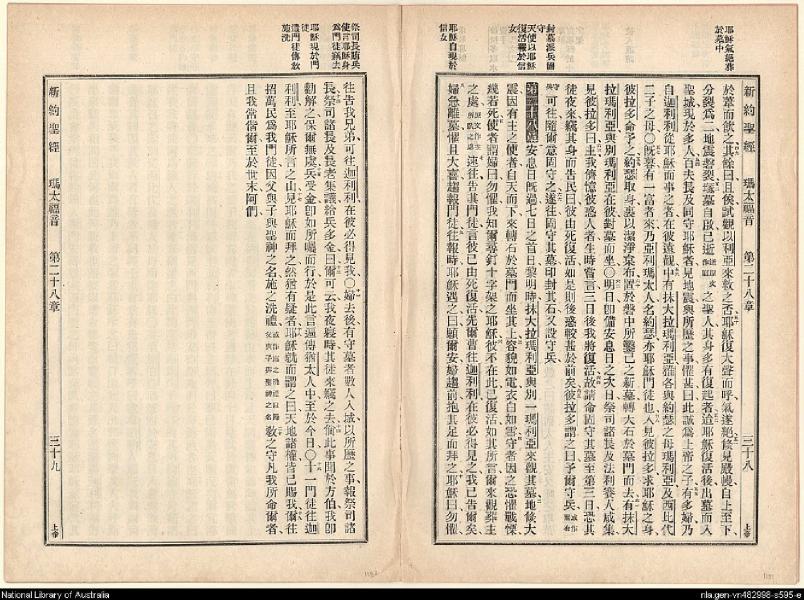 耶穌氣絕葬
於墓中
新約聖經 瑪太福音 第二十八章 三十八 上帝
於葦而飲之其餘曰且俟試觀以利亞來救之否耶穌復大聲而呼氣遂絕倏見殿幔自上至下
分裂爲二地震磐裂塚墓自啟已逝之聖人其身多有復起者迨耶穌復活後出墓而入
聖城現於多人百夫長及同守耶穌者見地震與所歷之事懼甚曰此誠爲上帝之子有多婦乃
自迦利利從耶穌而事之者在彼遠觀中有抹大拉瑪利亞雅各與約瑟之母瑪利亞及西比代
二子之母〇旣暮有一富者來乃亞利瑪太人名約瑟亦耶穌門徒也入見彼拉多求耶穌之身
彼拉多命予之約瑟取身裹以潔淨枲布置於磐中所鑿己之新墓轉大石於墓門而去有抹大
拉瑪利亞與別瑪利亞在彼對墓而坐〇明日卽備安息日之次日祭司諸長及法利賽人咸集
見彼拉多曰主我儕憶彼惑人者生時嘗言三日後我將復活故請命固守其墓至第三日恐其
徒夜來竊其身而告民曰彼由死復活如是則後惑較甚於前矣彼拉多謂之曰予爾守兵
可往隨爾意固守之遂往固守其墓印封其石又設守兵
封墓派兵固
守
天使以耶穌
復活報於信
女
第二十八章 安息日旣過七日之首日黎明時抹大拉瑪利亞與別一瑪利亞來觀其墓地倏大
震因有主之使者自天而下來轉石於墓門而坐其上容貌如電衣白如雪守者因之恐懼戰慄
幾若死使者謂婦曰勿懼我知爾尋釘十字架之耶穌彼不在此已復活如其所言爾來觀葬主
之處速往告其門徒言彼已由死復活先爾曹往迦利利在彼必得見之我已告爾矣
婦急離墓懼且大喜趨報門徒往報時耶穌遇之曰願爾安婦趨前抱其足而拜之耶穌曰勿懼
耶穌自現於
信女
祭司長賄兵
使言耶穌身
爲門徒竊去
耶穌現於門
徒
遣門徒傳教
施洗
往告我兄弟可往迦利利在彼必得見我〇婦去後有守墓者數人入城以所歷之事報祭司諸
長祭司諸長及長老集議給兵多金曰爾可云我夜寢時其徒來竊之去倘此事聞於方伯我卽
勸解之保爾無虞兵受金卽如所囑而行於是此言徧傳猶太人中至於今日〇十一門徒往迦
利利至耶穌所言之山見耶穌而拜之然猶有疑者耶穌就而謂之曰天地諸權皆已賜我爾往
招萬民爲我門徒因父與子與聖神之名施之洗禮教之守凡我所命爾者
且我常偕爾至於世末阿們
新約聖經 瑪太福音 第二十八章 三十九 上帝
National Library of Australia
nla.gen-vn482998-s595-e